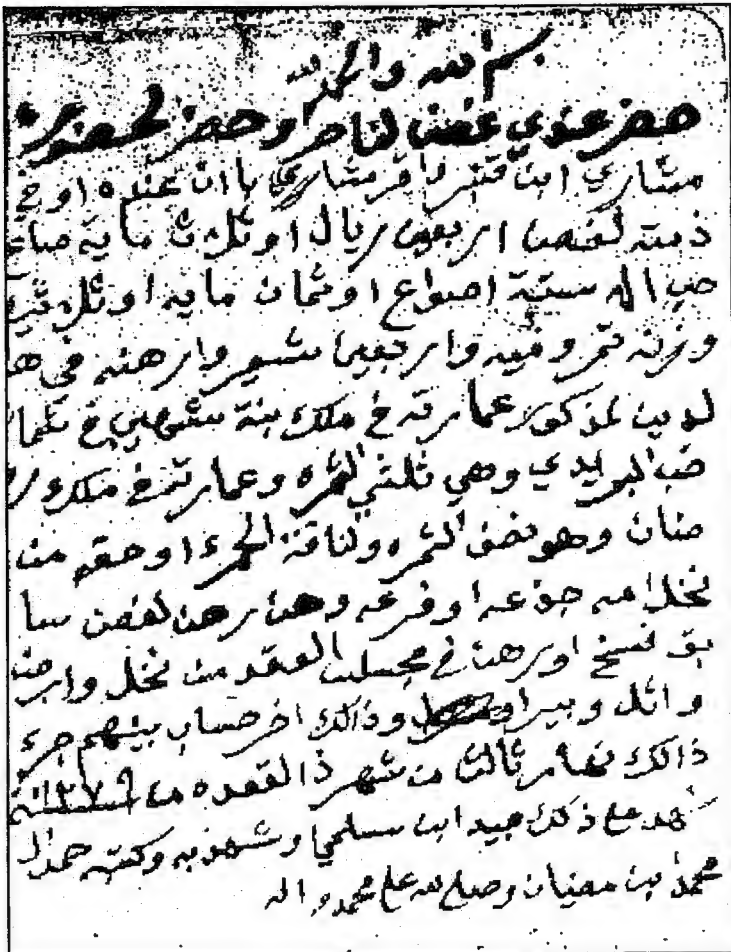 بسم الله والحمد لله
حضر عندي غصن لناصر او حضر لحضوره
مشاري ابن قنير اقر مشاري باان عنده اوفي
ذمته لغصن اربعين ريال او ثلاث ماية صاع
حب اله ستة اصواع اوثمان مايه او ثلاثين
وزنه تمر وفيه واربعين شعير وارهنه في ها
لدين لمذكور عمارته في ملك بنة
حب البريدي وهي ثلثي الثمره وعمارته في ملك
ضنان وهو نصف الثمره ولناقة الحمرء اوحقه من
نخل امه جذعه اوفرعه وهن رهن لغصن سا
بق نسخ اورهن في مجلس العقد من نخل وارض
واثل وبير وذالك اخر حساب بينهم جرء
ذالك نهار ثالث من شهر ذالقعده من سنة ١٢٧٩
شهد على ذلك عبيد ابن سلمي وشهد به وكتبه حمد ال
محمد بن معنيان وصلى لله على محمد واله